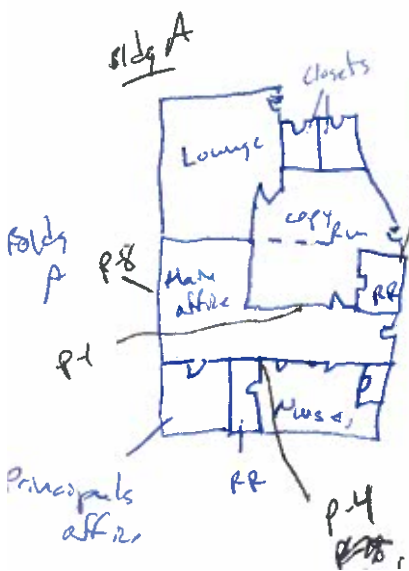 Bldg A
Closets
Lounge
Copy Rm
Bldg
A
P-8
Main
office
RR
P-1
Nurse
Principals
office
RR
P-4